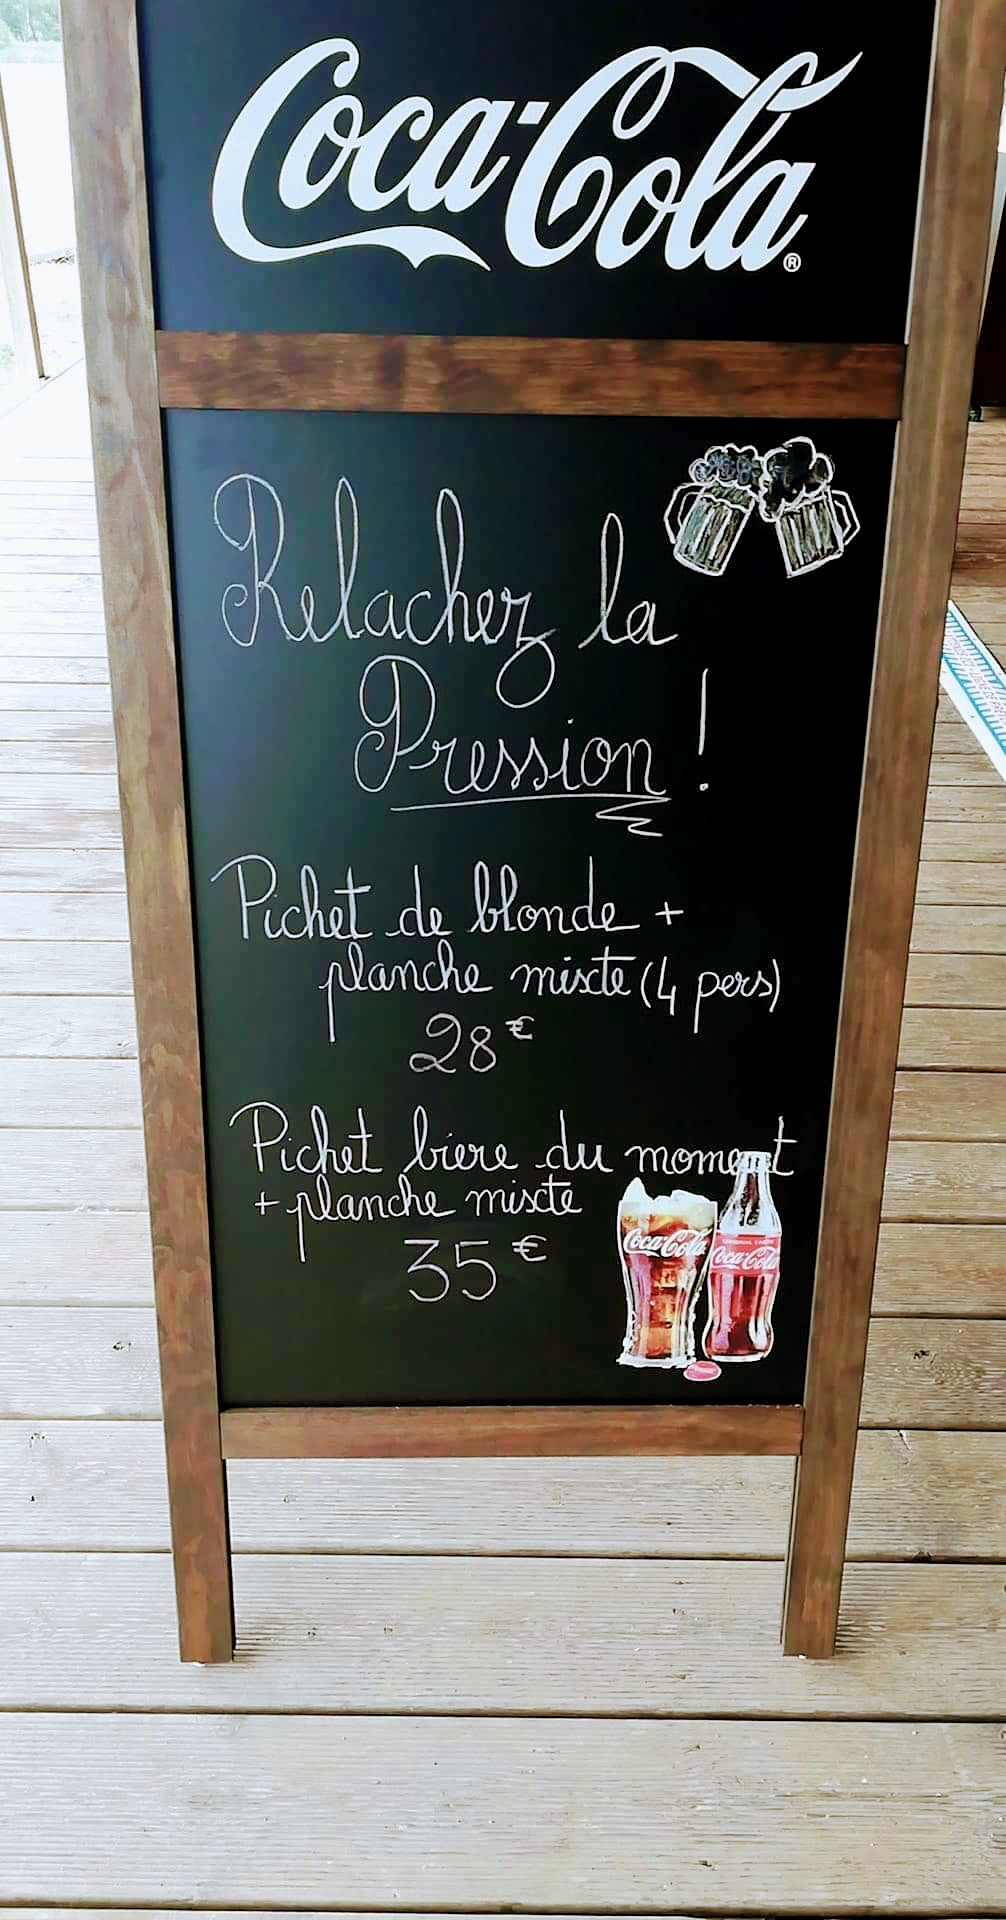 Coca-Cola®
Relachez la
Pression !
Pichet de blonde +
planche mixte (4 pers)
28€
Pichet bière du moment
+ planche mixte
35€
Coca-Cola
Coca-Cola